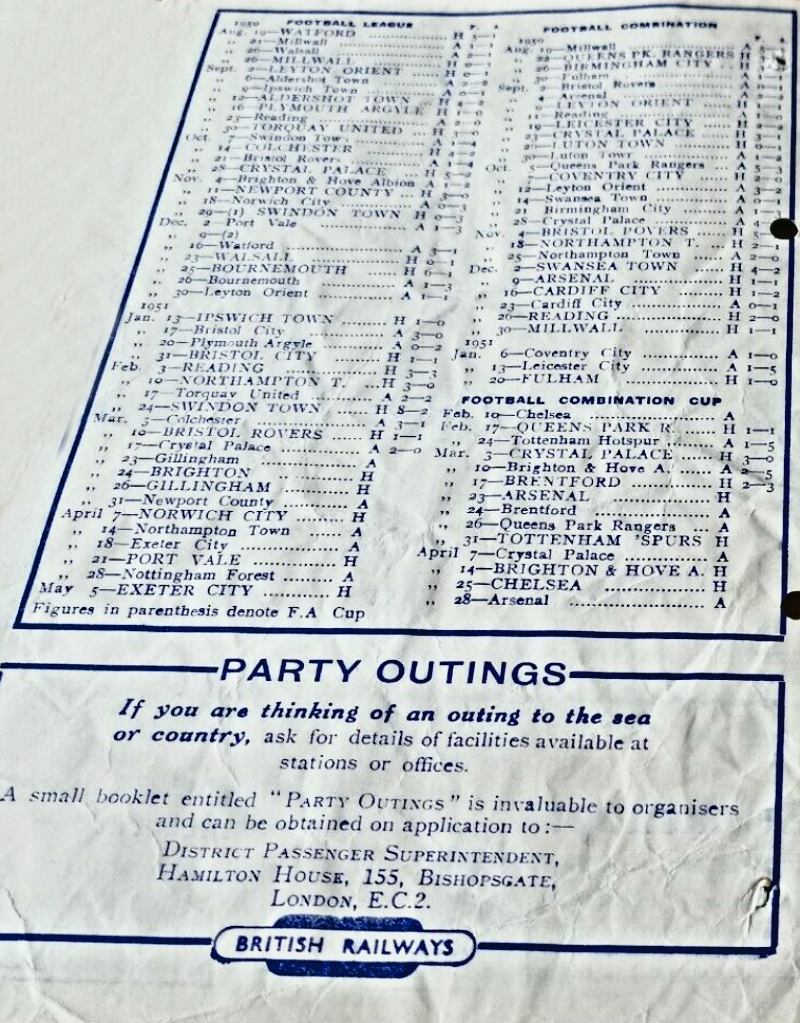 1950 FOOTBALL LEAGUE F. A.
Aug. 19—WATFORD H 3—1
,, 21—Millwall A
,, 26—Walsall A
,, 28—MILLWALL H
Sept. 2—LEYTON ORIENT H 0—1
,, 6—Aldershot Town A
,, 9—Ipswich Town A
,, 12—ALDERSHOT TOWN H
,, 16—PLYMOUTH ARGYLE H
,, 23—Reading A
,, 30—TORQUAY UNITED H
Oct. 7—Swindon Town A
,, 14—COLCHESTER H
,, 21—Bristol Rovers A
,, 28—CRYSTAL PALACE H 5—2
Nov. 4—Brighton & Hove Albion A
,, 11—NEWPORT COUNTY H
,, 18—Norwich City A
,, 29—(1) SWINDON TOWN H
Dec. 2 Port Vale A
,, 9—(2)
,, 16—Watford A
,, 23—WALSALL H 0—1
,, 25—BOURNEMOUTH H 6—1
,, 26—Bournemouth A 1—3
,, 30—Leyton Orient A 1—1
1951
Jan. 13—IPSWICH TOWN H 1—0
,, 17—Bristol City A
,, 20—Plymouth Argyle A 0—2
,, 31—BRISTOL CITY H 1—1
Feb. 3—READING H 3—3
,, 10—NORTHAMPTON T. H 3—0
,, 17—Torquay United A 2—2
,, 24—SWINDON TOWN H 8—2
Mar. 3—Colchester A 3—1
,, 10—BRISTOL ROVERS H 1—1
,, 17—Crystal Palace A 2—0
,, 23—Gillingham A
,, 24—BRIGHTON H
,, 26—GILLINGHAM H
,, 31—Newport County A
April 7—NORWICH CITY H
,, 14—Northampton Town A
,, 18—Exeter City A
,, 21—PORT VALE H
,, 28—Nottingham Forest A
May 5—EXETER CITY H
Figures in parenthesis denote F.A Cup
FOOTBALL COMBINATION
1950 F. A.
Aug. 19—Millwall A
,, 22—QUEENS PK. RANGERS H
,, 26—BIRMINGHAM CITY H
,, 30—Fulham A
Sept. 2—Bristol Rovers A
,, 4—Arsenal A
,, 9—LEYTON ORIENT H
,, 11—Reading A
,, 19—LEICESTER CITY H
,, 23—CRYSTAL PALACE H
,, LUTON TOWN H
,, 30—Luton Town A
Oct. 5—Queens Park Rangers A 5—3
,, 7—COVENTRY CITY H
,, 12—Leyton Orient A
,, 14—Swansea Town A
,, 21 Birmingham City A
,, 28—Crystal Palace A
Nov. 4—BRISTOL ROVERS H
,, 18—NORTHAMPTON T. H 2—1
,, 25—Northampton Town A
Dec. 2—SWANSEA TOWN H 4—2
,, 9—ARSENAL H 1—1
,, 16—CARDIFF CITY H 1—2
,, 23—Cardiff City A 0—1
,, 26—READING H 2—0
,, 30—MILLWALL H 1—1
1951
Jan. 6—Coventry City A 1—0
,, 13—Leicester City A 1—5
,, 20—FULHAM H 1—0
FOOTBALL COMBINATION CUP
Feb. 10—Chelsea A
Feb. 17—QUEENS PARK R. H 1—1
,, 24—Tottenham Hotspur A 1—5
Mar. 3—CRYSTAL PALACE H 3—0
,, 10—Brighton & Hove A. A 2—5
,, 17—BRENTFORD H 2—3
,, 23—ARSENAL H
,, 24—Brentford A
,, 26—Queens Park Rangers A
,, 31—TOTTENHAM 'SPURS H
April 7—Crystal Palace A
,, 14—BRIGHTON & HOVE A. H
,, 25—CHELSEA H
,, 28—Arsenal A
PARTY OUTINGS
If you are thinking of an outing to the sea
or country, ask for details of facilities available at
stations or offices.
A small booklet entitled "PARTY OUTINGS" is invaluable to organisers
and can be obtained on application to:—
DISTRICT PASSENGER SUPERINTENDENT,
HAMILTON HOUSE, 155, BISHOPSGATE,
LONDON, E.C.2.
BRITISH RAILWAYS